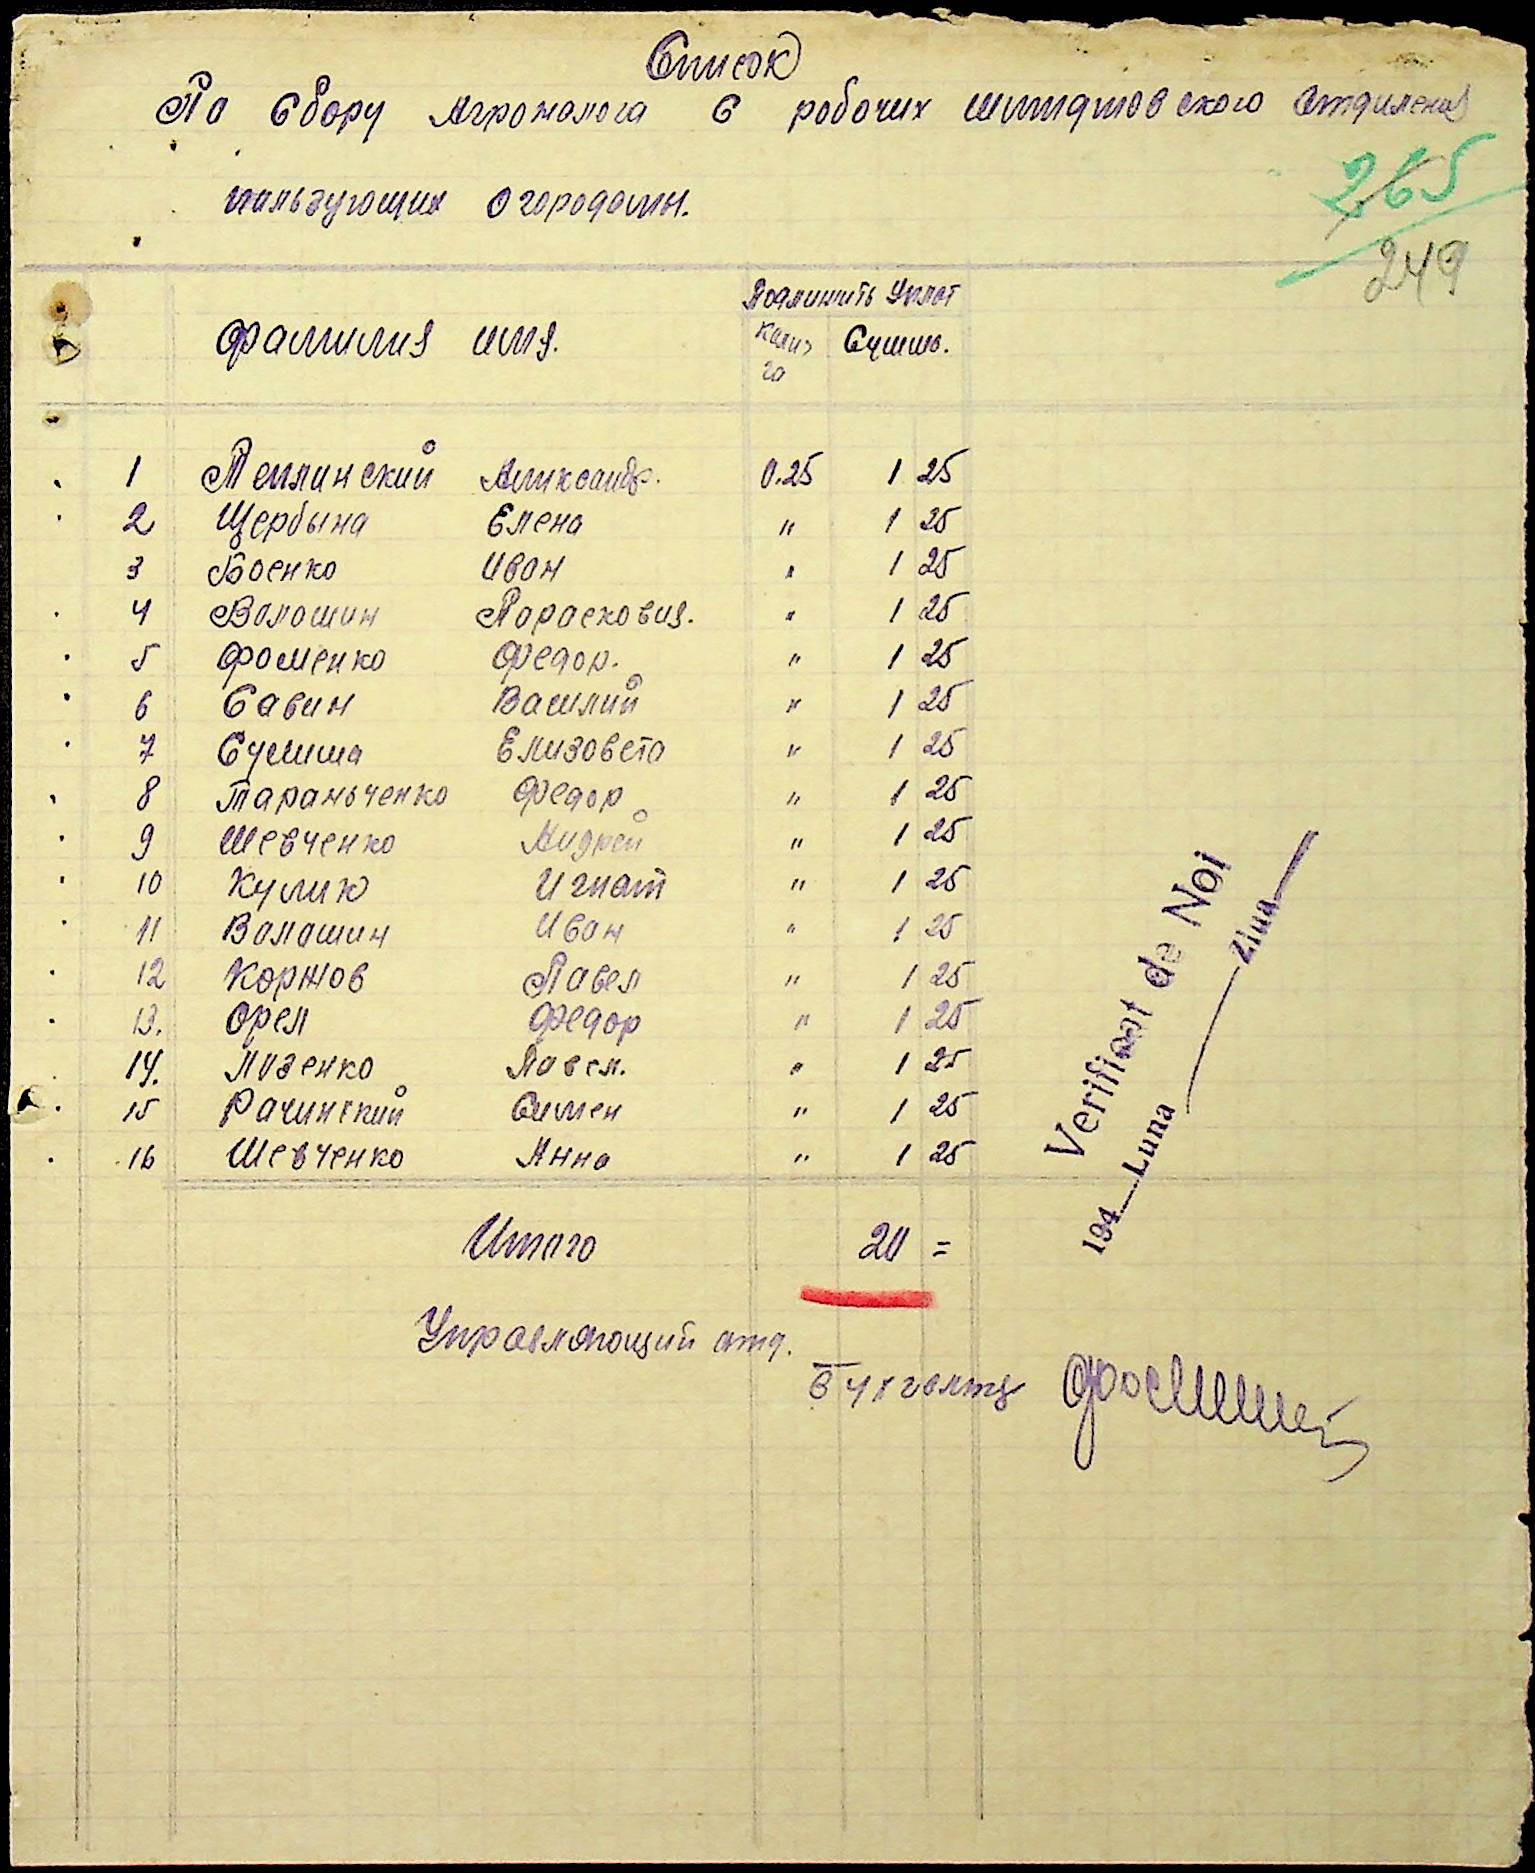 Список
По Сбору Агроналога С робочих шмидтовского отдиления
265
пользующих огородами.
249
Фамилия имя.
Подлижить Уплот
Сумма.
1 Теплинский Александр. 0.25 1 25
2 Щербына Елена " 1 25
3 Боенко Иван " 1 25
4 Волошин Парасковия. " 1 25
5 Фоменко Федор. " 1 25
6 Савин Василий " 1 25
7 Сумиша Елизовета " 1 25
8 Тараньченко Федор " 1 25
9 Шевченко Андрей " 1 25
10 Кулик Игнат " 1 25
11 Валашин Иван " 1 25
12 Коржов Павел " 1 25
13. Орел Федор " 1 25
14. Лозенко Павел. " 1 25
15 Рачинский Симен " 1 25
16 Шевченко Анна " 1 25
Итого 20 =
Управляющий отд.
Бухгалтер
Verificat de Noi
194__ Luna ____ Ziua ____